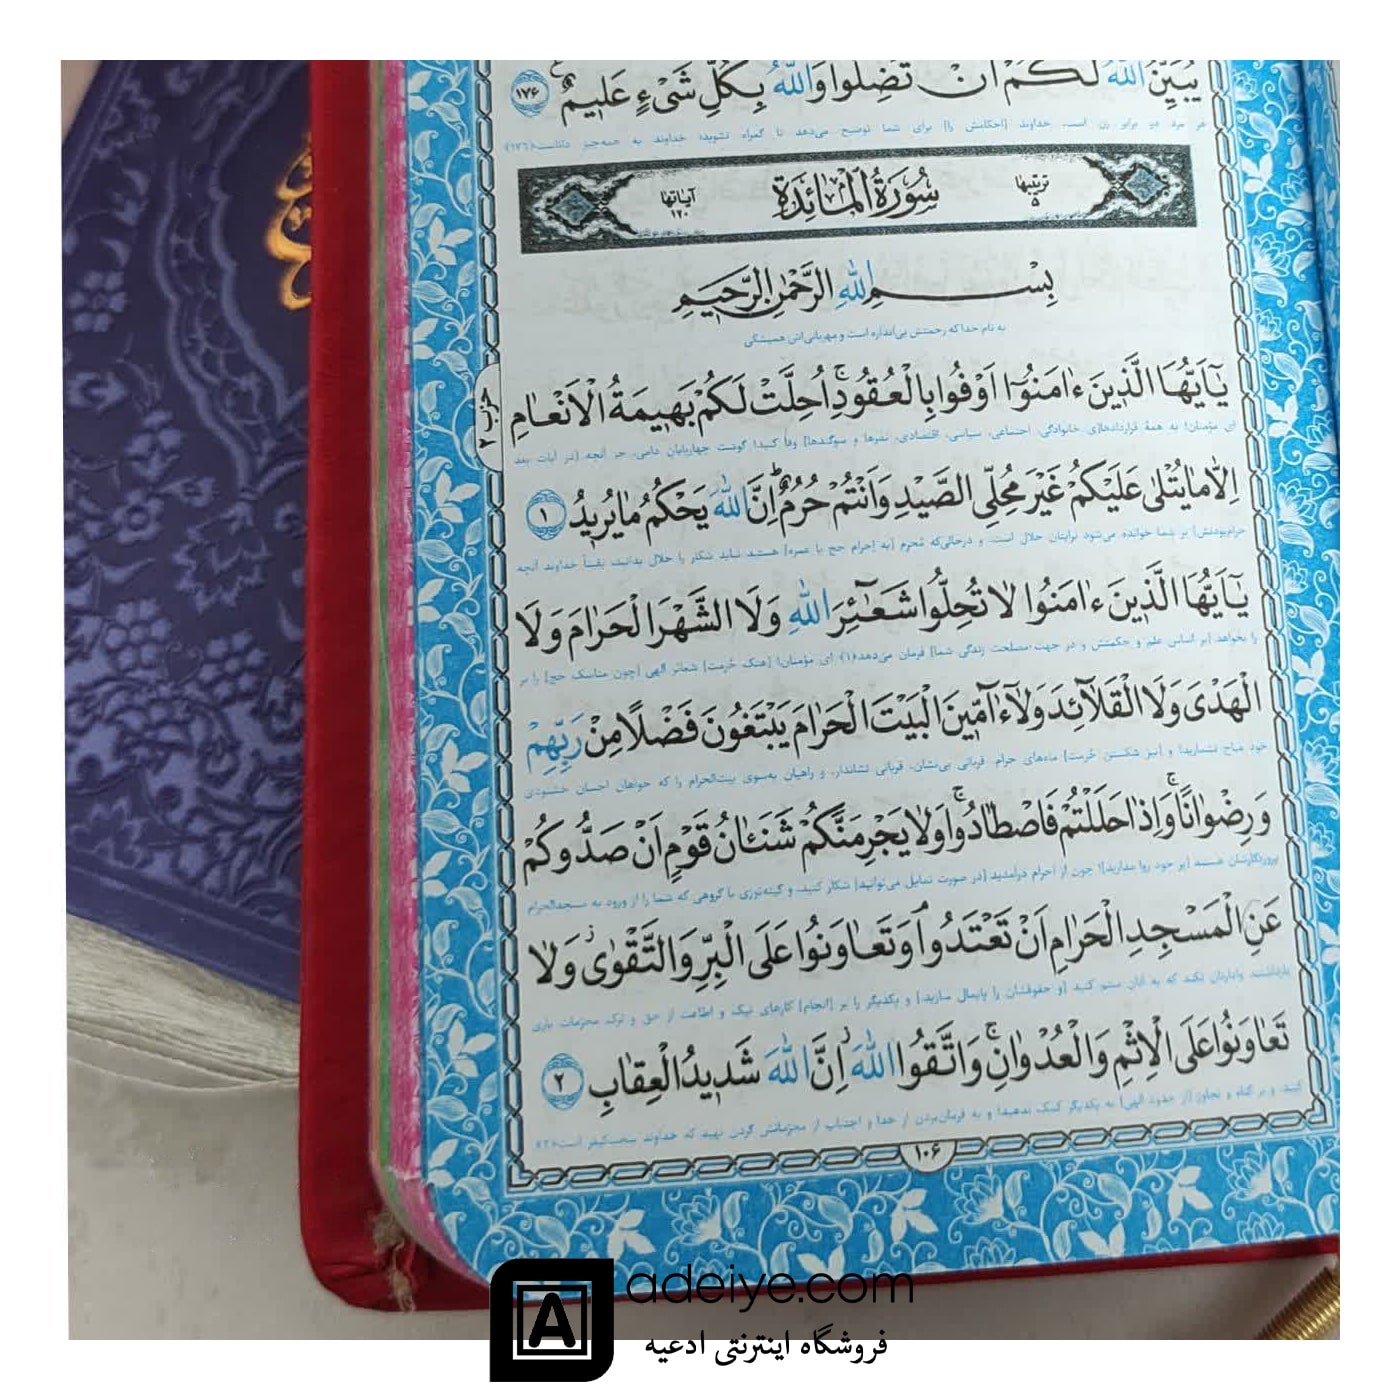 يُبَيِّنُ اللّٰهُ لَكُمْ اَنْ تَضِلُّوا وَاللّٰهُ بِكُلِّ شَىْءٍ عَليمٌ ١٧۶
هر مرد دو برابر زن است. خداوند [احکامش را] برای شما توضیح می‌دهد تا گمراه نشوید؛ خداوند به همه‌چیز داناست﴿۱۷۶﴾
ترتيبها ۵ سُورَةُ الْمٰائِدَة آياتها ١٢٠
بِسْمِ اللّٰهِ الرَّحْمٰنِ الرَّحيمِ
به نام خدا که رحمتش بی‌اندازه است و مهربانی‌اش همیشگی
يٰٓاَيُّهَا الَّذينَ ءٰامَنُوٓا اَوْفُوا بِالْعُقُودِۚ اُحِلَّتْ لَكُمْ بَهيمَةُ الْاَنْعٰامِ
حزب ٢
ای مؤمنان! به همهٔ قراردادها[ی خانوادگی، اجتماعی، سیاسی، اقتصادی، نذرها و سوگندها] وفا کنید! گوشت چهارپایان دامی، جز آنچه [در آیات بعد
اِلّٰا مٰا يُتْلٰى عَلَيْكُمْ غَيْرَ مُحِلِّى الصَّيْدِ وَاَنْتُمْ حُرُمٌؕ اِنَّ اللّٰهَ يَحْكُمُ مٰا يُريدُ ١
حرام‌بودنش] بر شما خوانده می‌شود برایتان حلال است، و درحالی‌که مُحرم [به اِحرام حج یا عمره] هستید نباید شکار را حلال بدانید، یقیناً خداوند آنچه
يٰٓاَيُّهَا الَّذينَ ءٰامَنُوا لٰا تُحِلُّوا شَعٰٓائِرَ اللّٰهِ وَلَا الشَّهْرَ الْحَرٰامَ وَلَا
را بخواهد [بر اساس علم و حکمتش و در جهت مصلحت زندگی شما] فرمان می‌دهد﴿۱﴾ ای مؤمنان! [هتک حُرمت] شعائر الهی [چون مناسک حج] را بر
الْهَدْىَ وَلَا الْقَلٰٓائِدَ وَلٰٓا ءٰامّينَ الْبَيْتَ الْحَرٰامَ يَبْتَغُونَ فَضْلًا مِنْ رَبِّهِمْ
خود مُباح نشمارید! و [نیز شکستن حُرمت] ماه‌های حرام، قربانی بی‌نشان، قربانی نشاندار، و راهیان به‌سوی بیت‌الحرام را که خواهان احسان خشنودی
وَرِضْوٰانًاۚ وَاِذٰا حَلَلْتُمْ فَاصْطٰادُواۚ وَلٰا يَجْرِمَنَّكُمْ شَنَـَٔانُ قَوْمٍ اَنْ صَدُّوكُمْ
پروردگارشان هستند [بر خود روا مدارید]! چون از احرام درآمدید [در صورت تمایل می‌توانید] شکار کنید، و کینه‌توزی با گروهی که شما را از ورود به مسجدالحرام
عَنِ الْمَسْجِدِ الْحَرٰامِ اَنْ تَعْتَدُوا وَتَعٰاوَنُوا عَلَى الْبِرِّ وَالتَّقْوٰى وَلٰا
بازداشتند، وادارتان نکند که به آنان ستم کنید [و حقوقشان را پایمال سازید]، و یکدیگر را بر [انجام] کارهای نیک و اطاعت از حق و ترک محرّمات یاری
تَعٰاوَنُوا عَلَى الْاِثْمِ وَالْعُدْوٰانِۚ وَاتَّقُوا اللّٰهَ اِنَّ اللّٰهَ شَديدُ الْعِقٰابِ ٢
کنید، و بر گناه و تجاوز [از حدود الهی] به یکدیگر کمک ندهید! و به فرمان‌بردن از خدا و اجتناب از محرّماتش گردن نهید که خداوند سخت‌کیفر است﴿۲﴾
١٠۶
adeiye.com
فروشگاه اینترنتی ادعیه